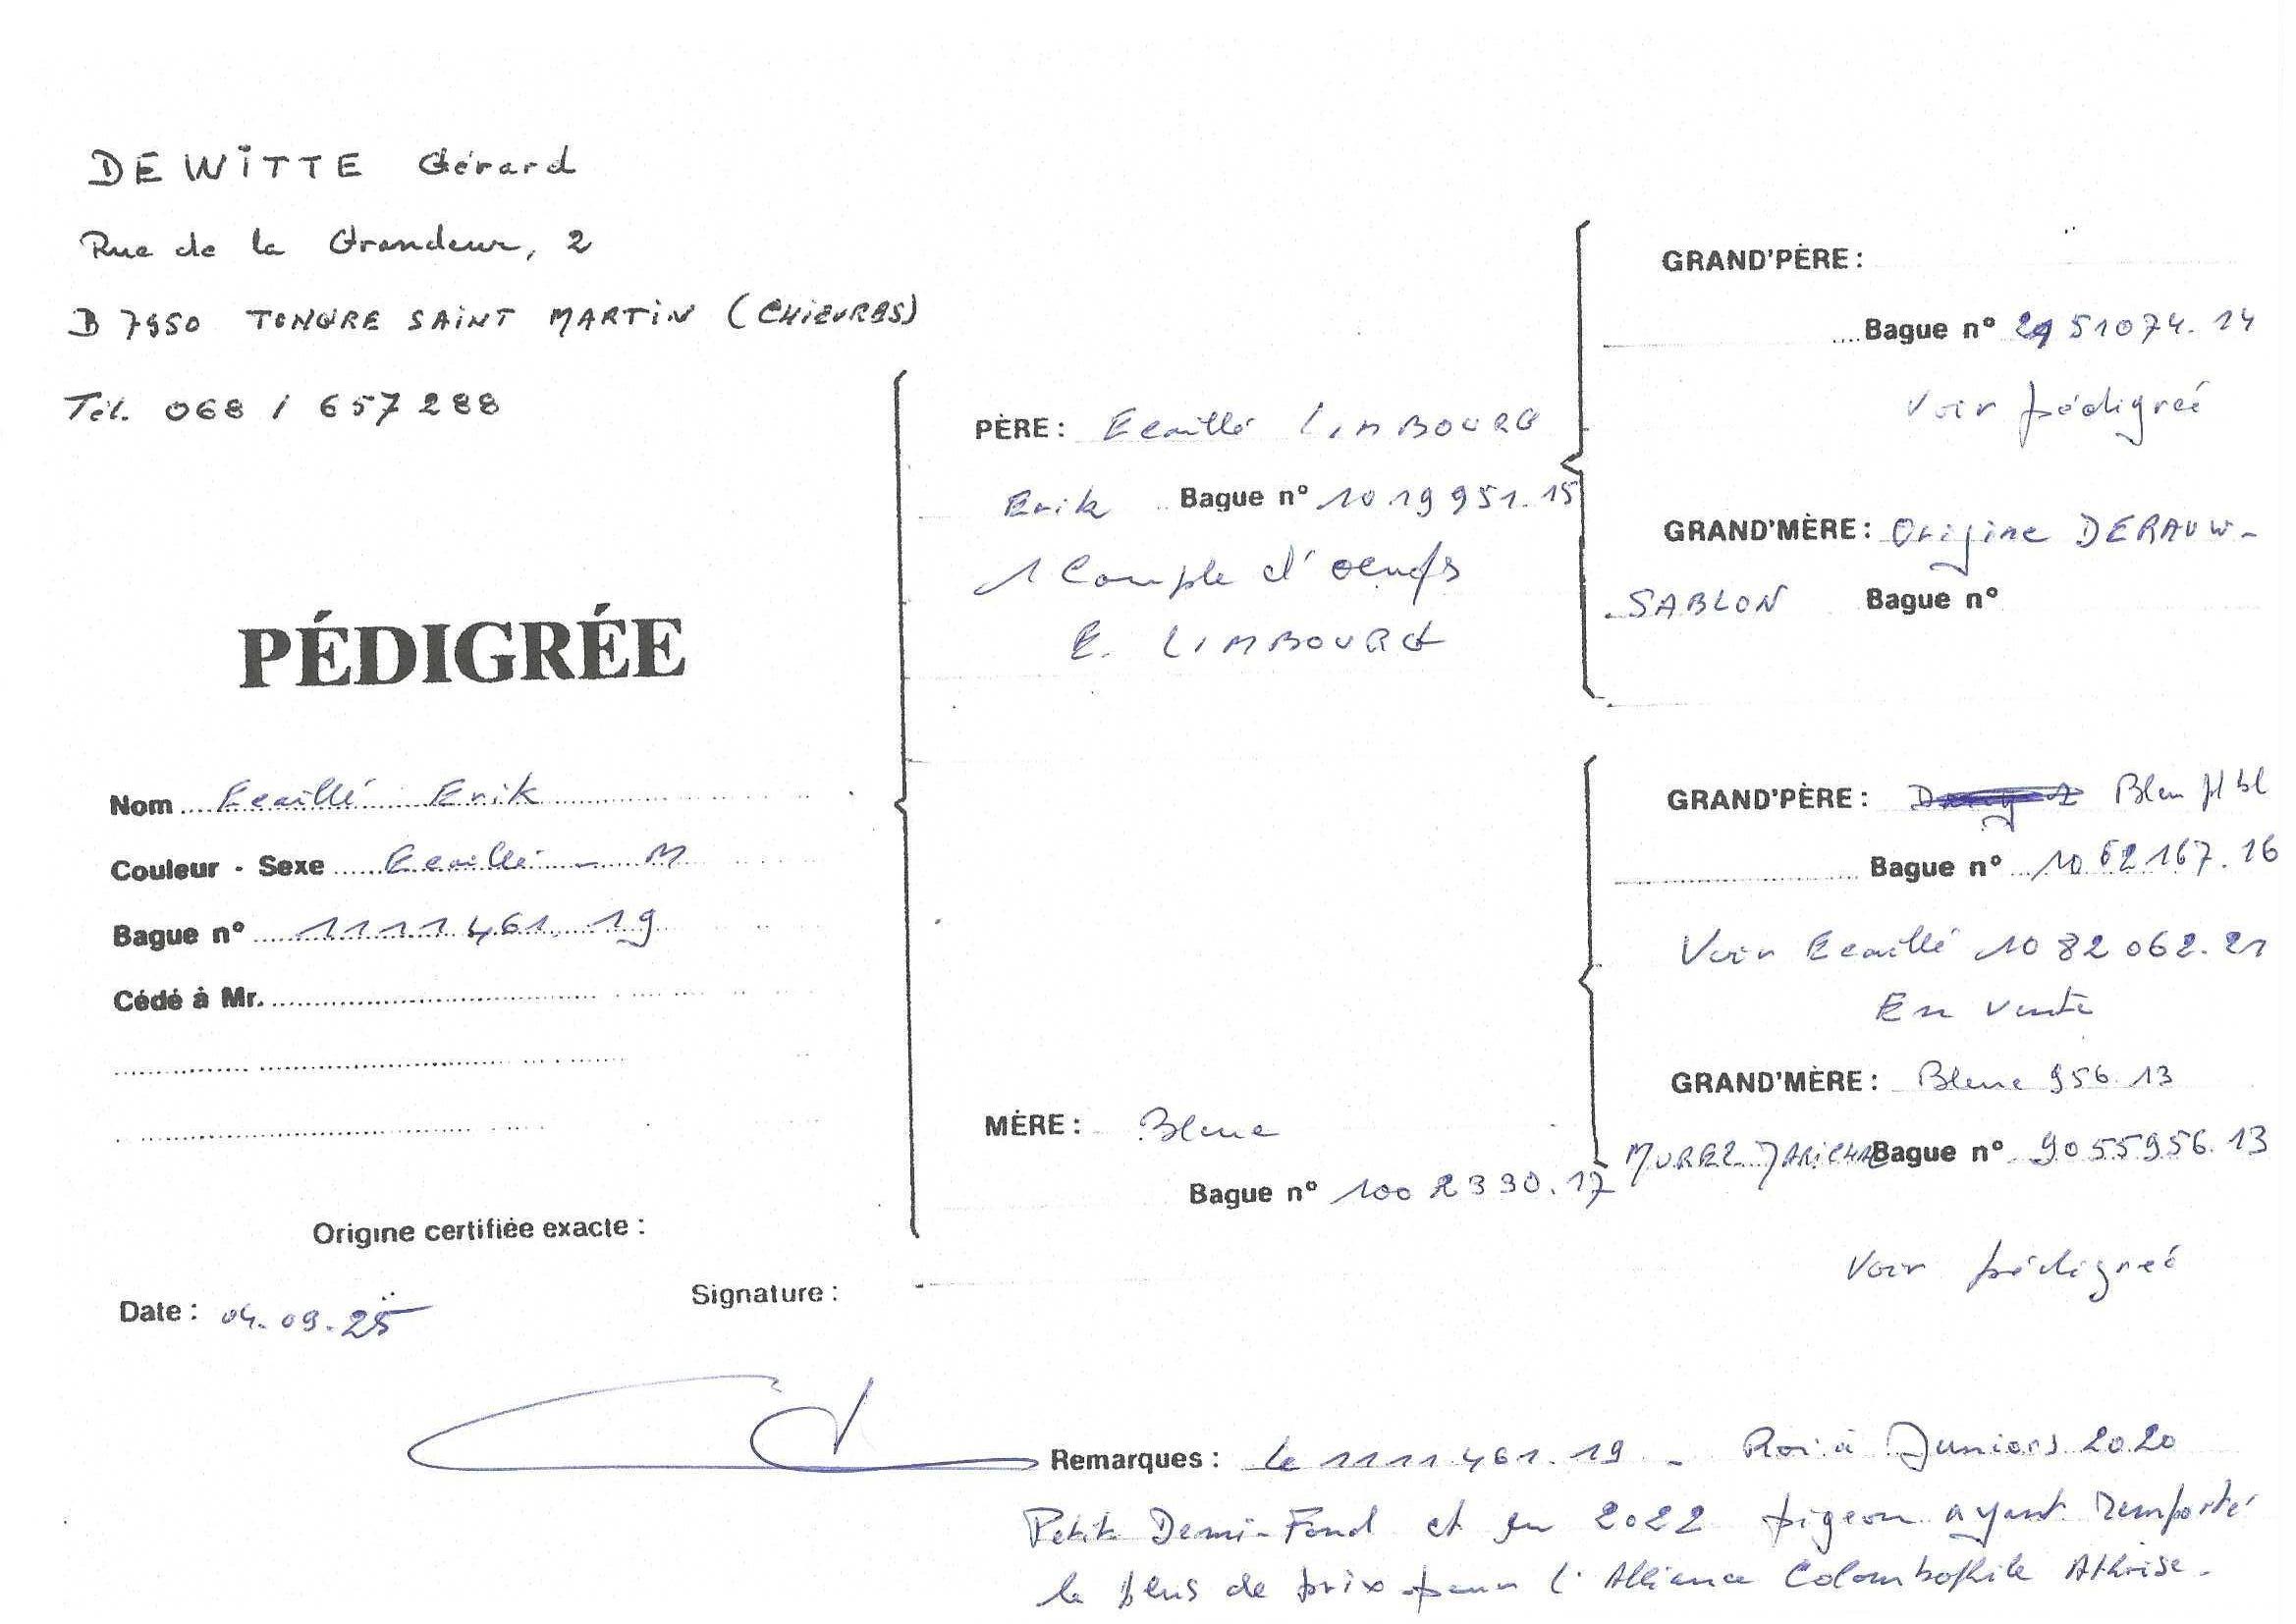 DEWITTE Gérard
Rue de la Grandeur, 2
B 7950 TONGRE SAINT MARTIN (CHIEVRES)
Tél. 068 / 657288
PÉDIGRÉE
Nom Ecaillé Erik
Couleur - Sexe Ecaillé - M
Bague n° 1111461.19
Cédé à Mr.
Origine certifiée exacte :
Date : 04.09.25
Signature :
PÈRE : Ecaillé LIMBOURG
Erik Bague n° 1019951.15
1 Couple d'oeufs
E. LIMBOURG
MÈRE : Bleue
Bague n° 1002330.17
GRAND'PÈRE :
Bague n° 2151074.14
Voir pédigreé
GRAND'MÈRE : Origine DERAUW-
SABLON Bague n°
GRAND'PÈRE : Bleu pl bl
Bague n° 1062167.16
Voir Ecaillé 1082062.21
En vente
GRAND'MÈRE : Bleue 956.13
MUREZ MARICHAL Bague n° 9055956.13
Voir pédigreé
Remarques : Le 1111461.19 - Roi à Juniors 2020
Petit Demi-Fond et en 2022 pigeon ayant remporté
le plus de prix pour l'Alliance Colombophile Athoise.